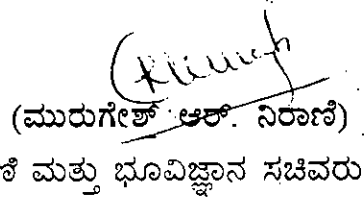 (ಮುರುಗೇಶ್ ಆರ್. ನಿರಾಣಿ)
ಮತ್ತು ಭೂವಿಜ್ಞಾನ ಸಚಿವರು